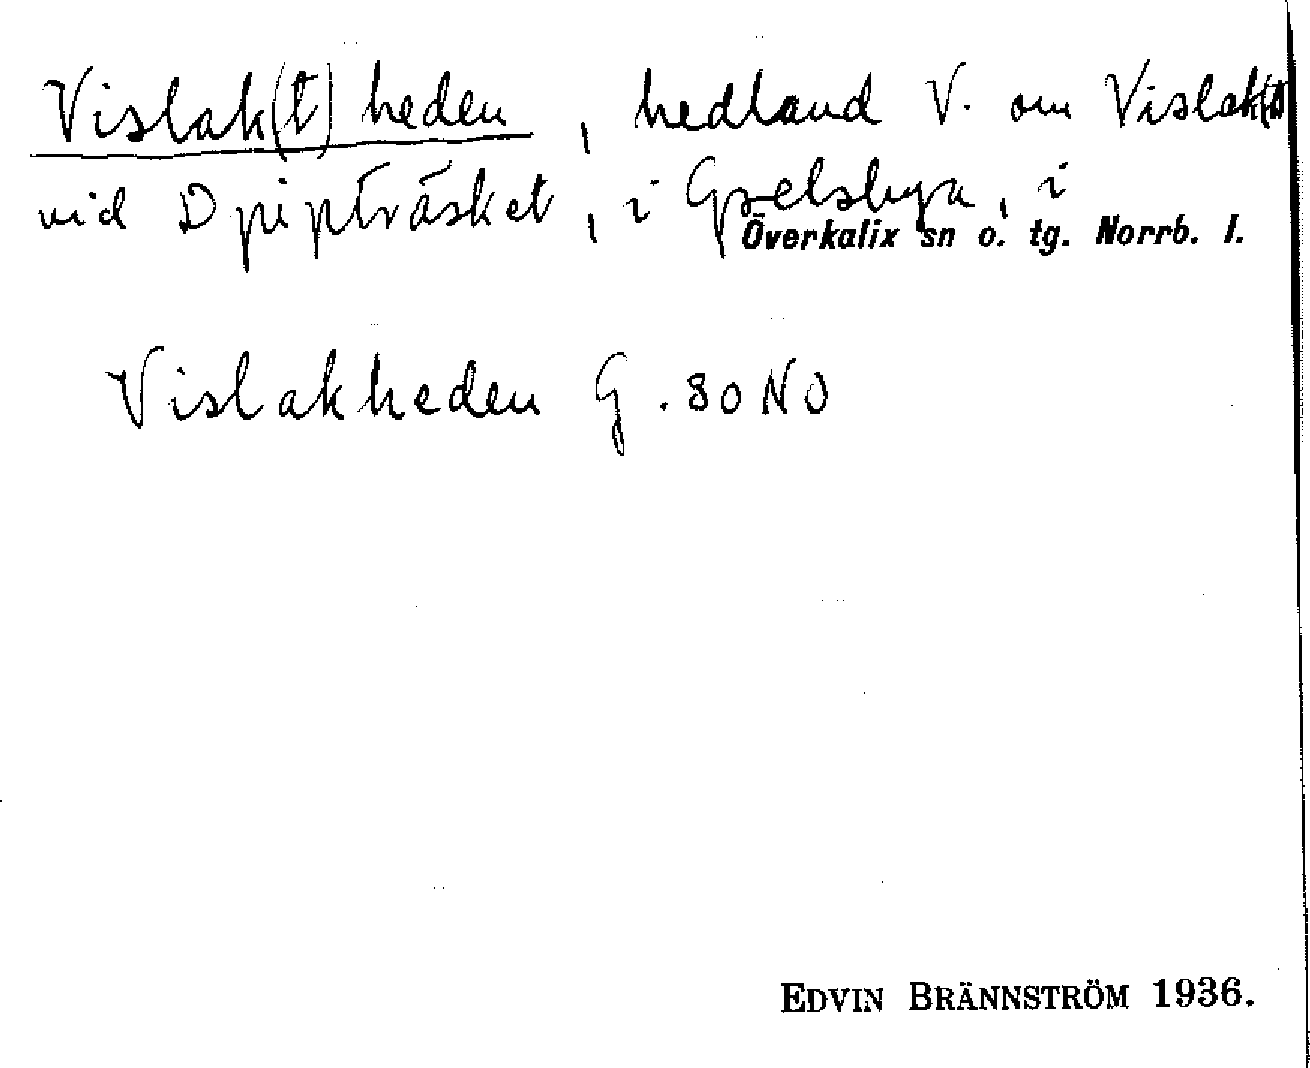 Vislak(t)heden, hedland V. om Vislak(t)
vid Dpipträsket, i Gyselsbyn, i
Överkalix sn o. tg. Norrb. l.
Vislakheden G. 80 NO
EDVIN BRÄNNSTRÖM 1936.